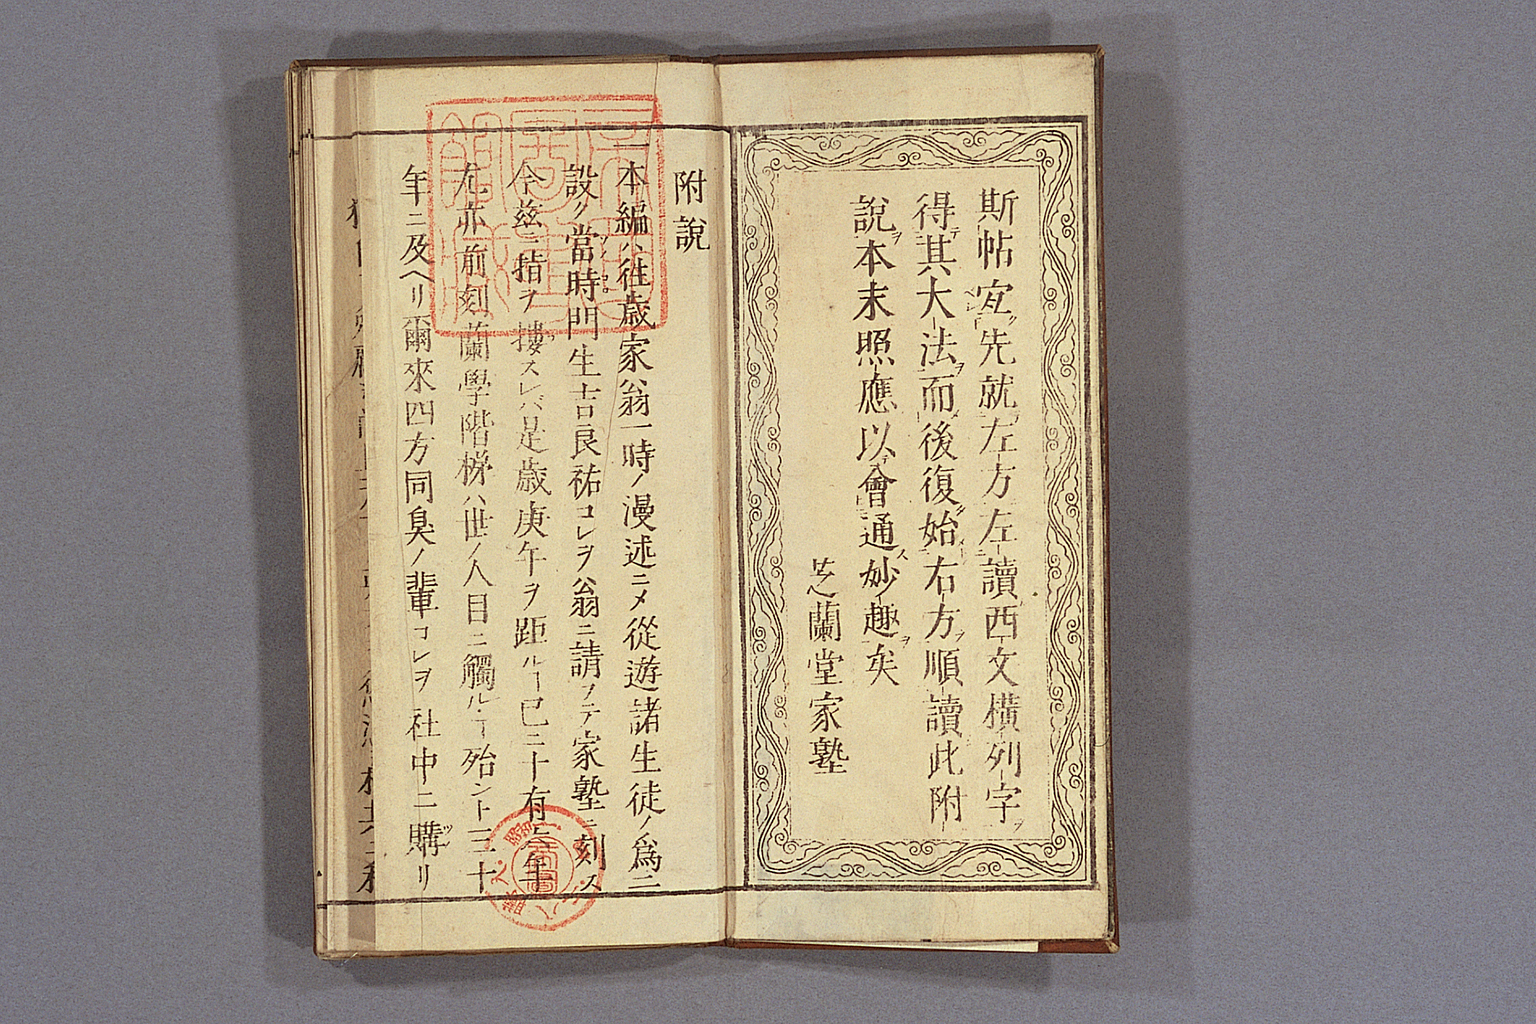 斯帖宜先就左方左讀西文橫列字
得其大法而後復始右方順讀此附
說本末照應以會通妙趣矣
芝蘭堂家塾
附說
一本編ハ往歲家翁一時ノ漫述ニメ從遊諸生徒ノ爲ニ
設ク當時門生吉良祐コレヲ翁ニ請フテ家塾ニ刻ス
今玆ニ指ヲ摟スレバ是歲庚午ヲ距ルヿ已ニ十有
尤亦前刻蘭學階梯ハ世ノ人目ニ觸ルヿ殆ント三十
年ニ及ヘリ爾來四方同臭ノ輩コレヲ社中ニ購リ